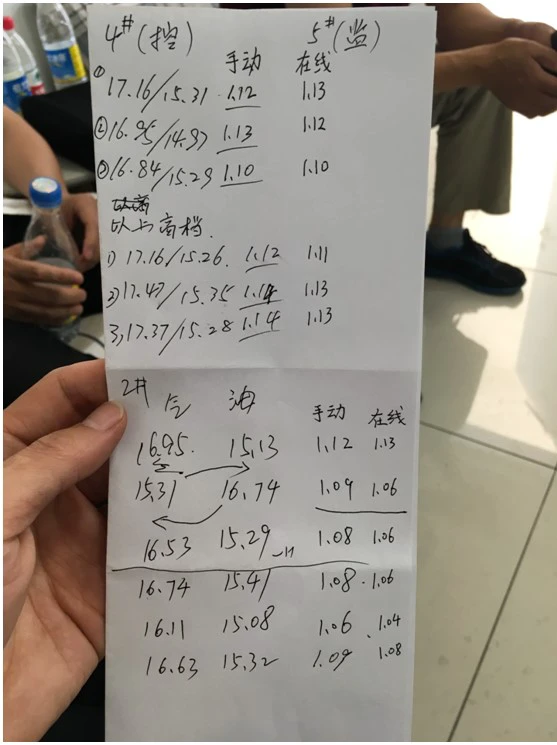 4#(控) 5#(监)
手动 在线
① 17.16/15.31 1.12 1.13
② 16.95/14.97 1.13 1.12
③ 16.84/15.29 1.10 1.10
以上高档.
1) 17.16/15.26. 1.12 1.11
2) 17.47/15.35 1.14 1.13
3, 17.37/15.28 1.14 1.13
2# 气 油 手动 在线
16.95. 15.13 1.12 1.13
15.31 16.74 1.09 1.06
16.53 15.29 1.08 1.06
16.74 15.41 1.08 1.06
16.11 15.08 1.06 1.04
16.63 15.32 1.09 1.08